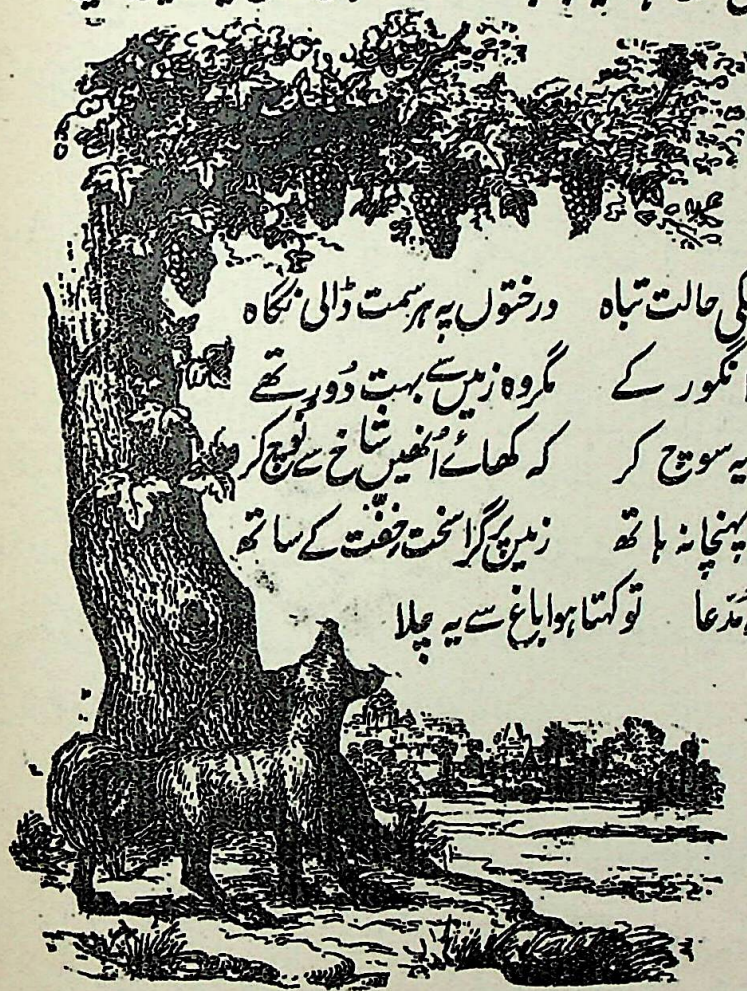 کی حالت تباہ درختوں پہ ہر سمت ڈالی نگاہ
انگور کے مگر وہ زمیں سے بہت دُور تھے
یہ سوچ کر کہ کھائے اُنھیں شاخ سے نوچ کر
پہنچا نہ ہاتھ زمیں پر گرا سخت خفّت کے ساتھ
مُدّعا تو کہتا ہوا باغ سے یہ چلا